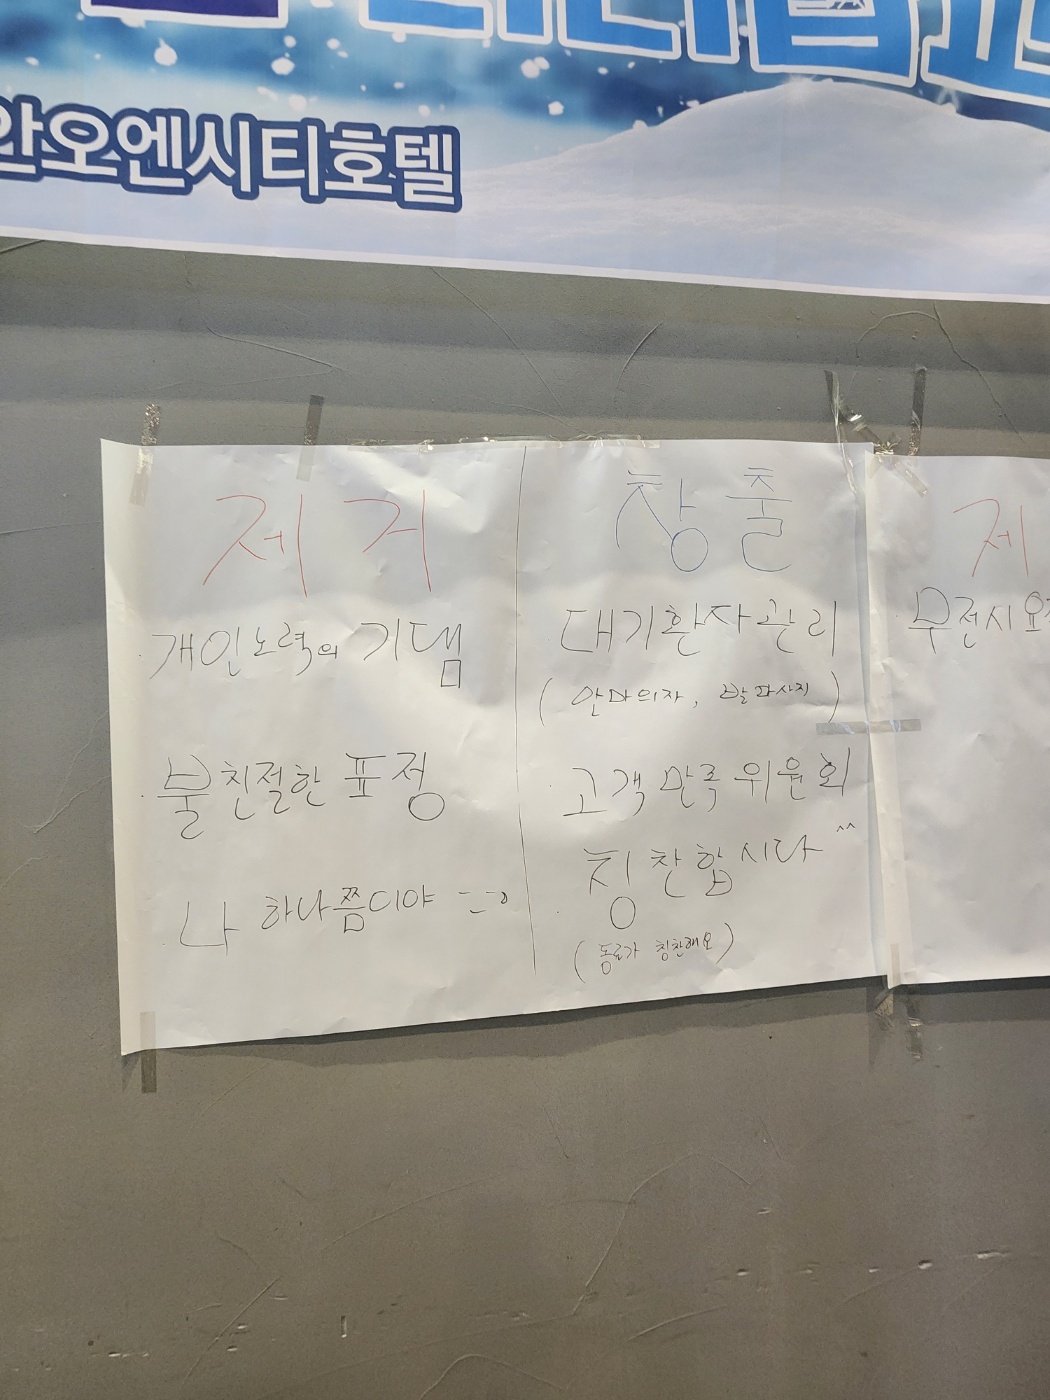 안오엔시티호텔
제거
개인노력의 기댐
불친절한 표정
나 하나쯤이야
창출
대기환자관리
(안마의자, 발마사지)
고객만족위원회
칭찬합시다 ^^
(동료가 칭찬해요)
제
무전시